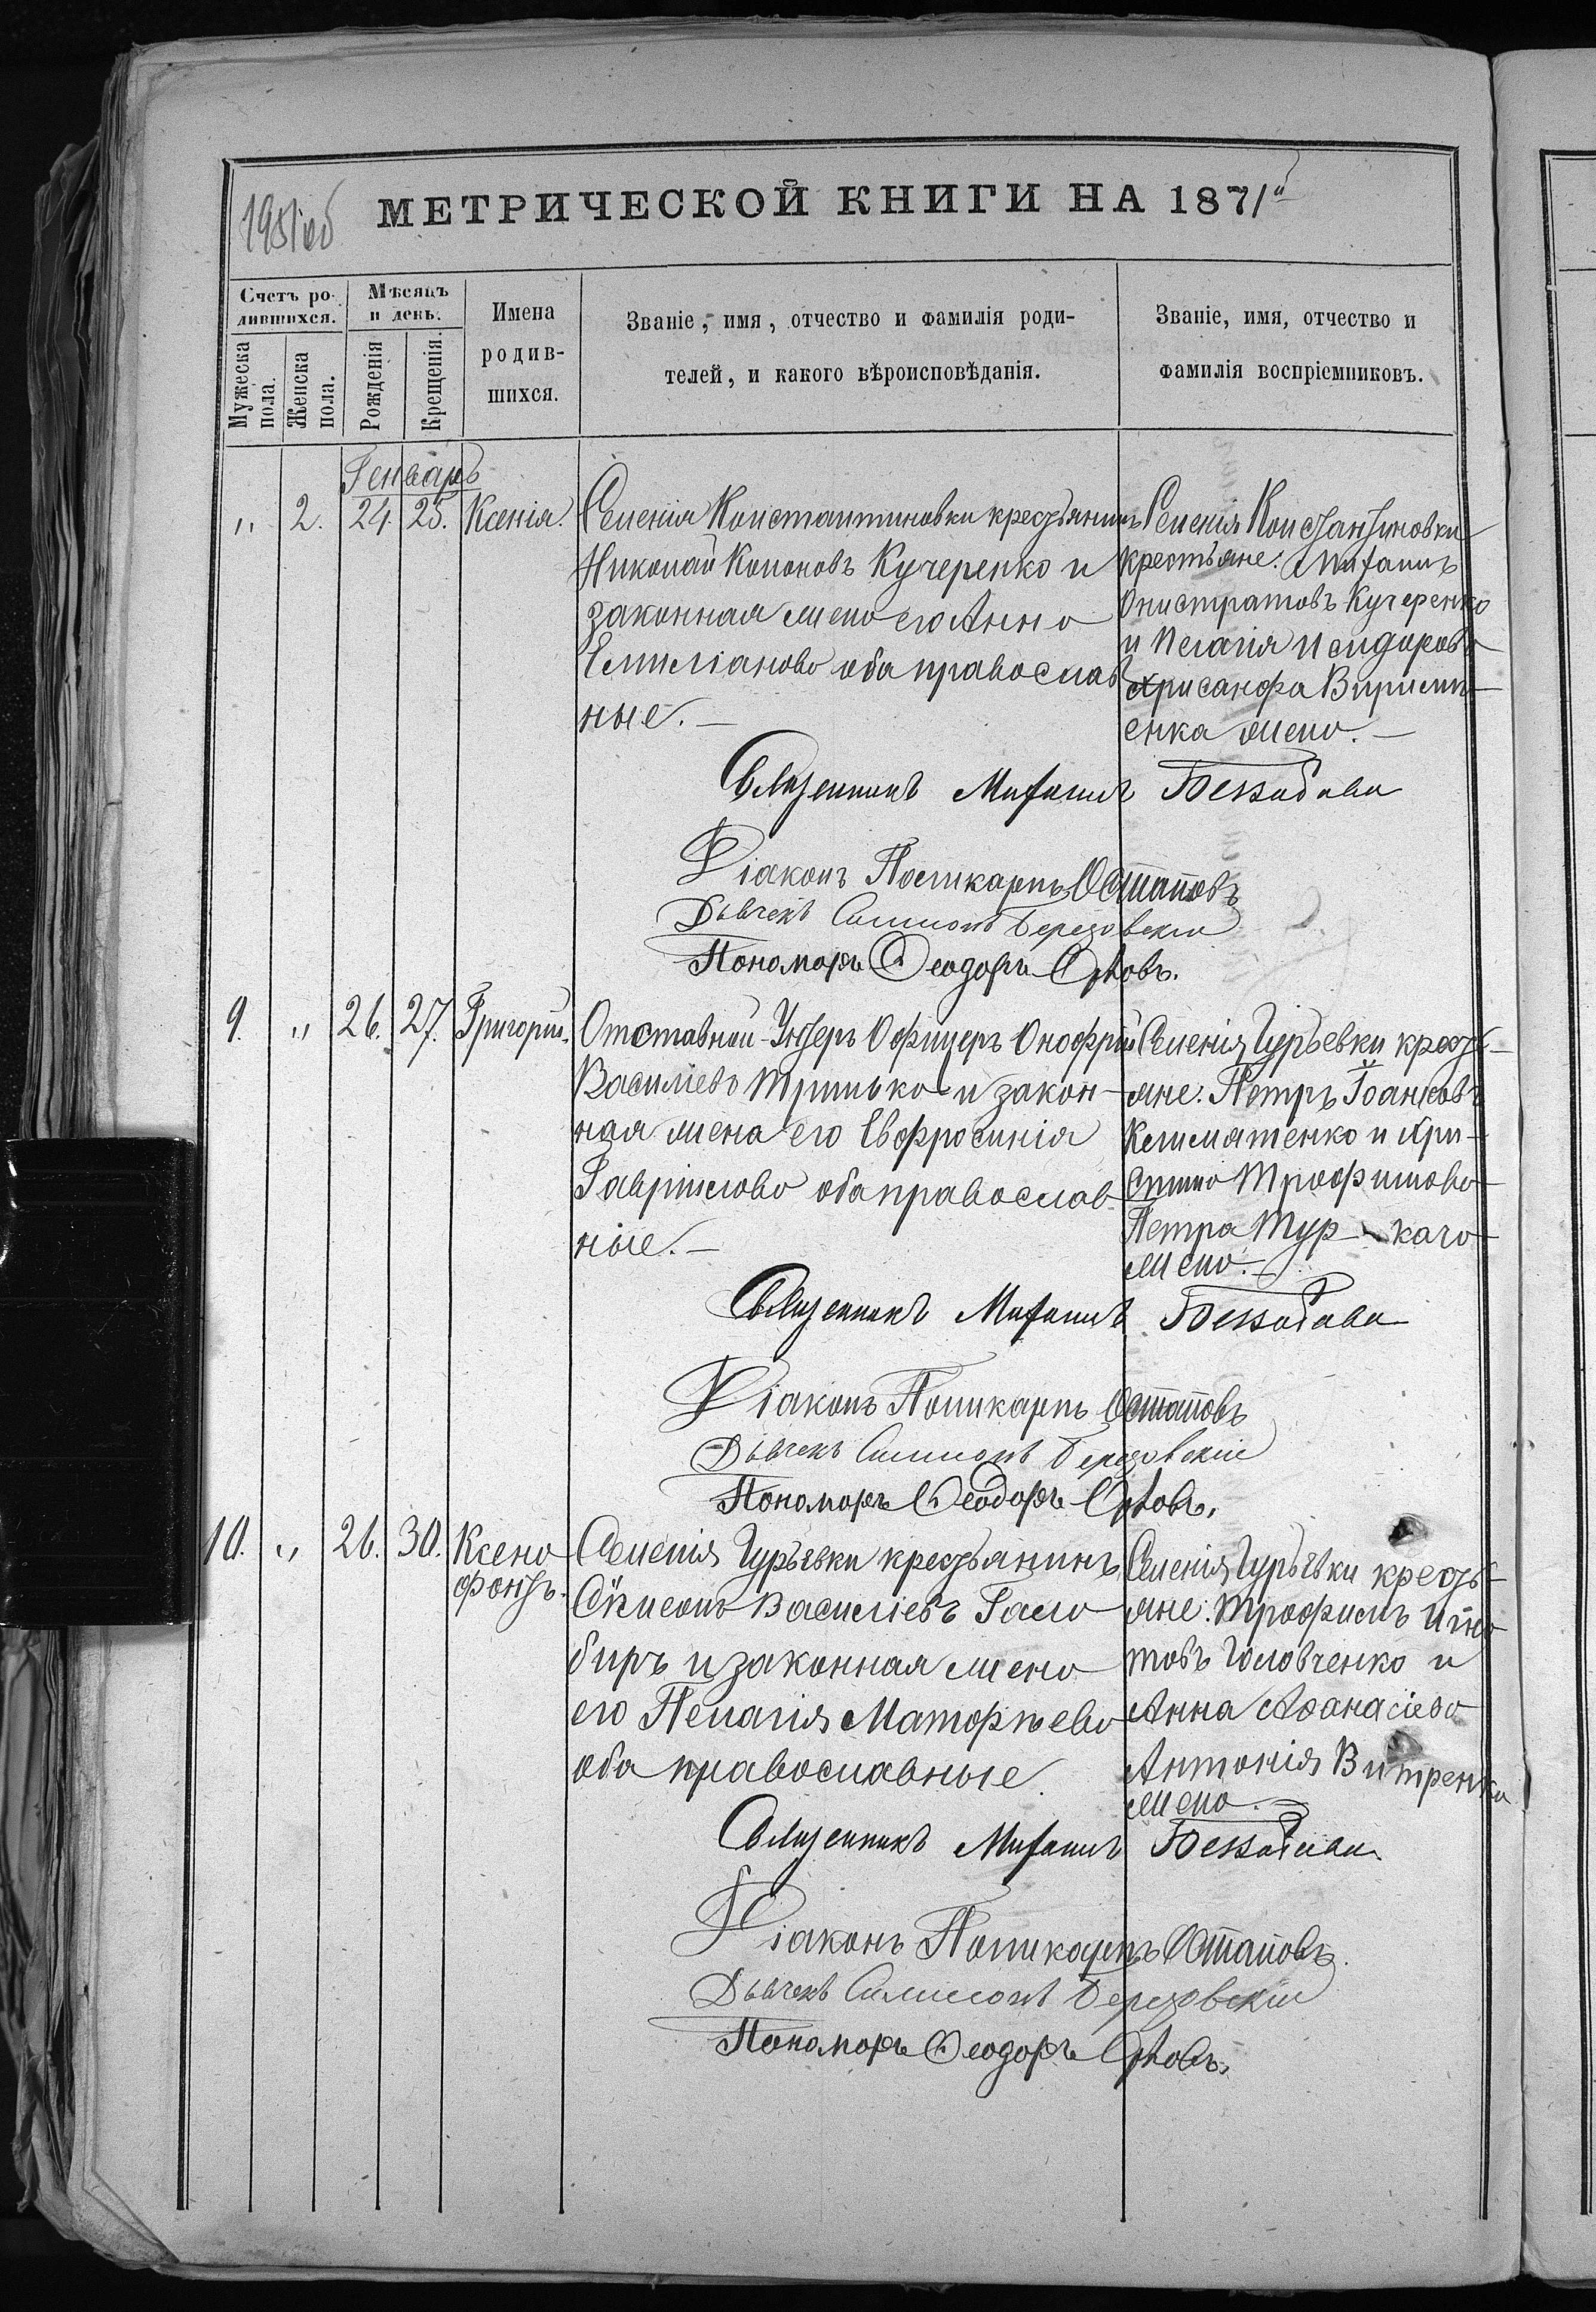 195 об
МЕТРИЧЕСКОЙ КНИГИ НА 1871й
Счетъ ро-
дившихся.
Мѣсяцъ
и день.
Мужеска
пола.
Женска
пола.
Рожденія
Крещенія.
Имена
родив-
шихся.
Званіе, имя, отчество и фамилія роди-
телей, и какого вѣроисповѣданія.
Званіе, имя, отчество и
фамилія воспріемниковъ.
Генварь
" 2. 24. 25. Ксенія.
Селенія Константиновки крестьянинъ
Николай Кононовъ Кучеренко и
законная жена его Анна
Емиліанова оба православ
ные.
Селенія Константиновки
крестьяне: Михаилъ
Онистратовъ Кучеренко
и Пелагія Исидорова
Хрисанфа
енка жена.
Священникъ Михаилъ
Діаконъ Поликарпъ Остаповъ
Дьячекъ Симеонъ Березовскій
Пономарь Ѳеодоръ Орловъ.
9. " 26. 27. Григорій.
Отставной Унтеръ Офицеръ Онофрій
Василіевъ Тринько и закон-
ная жена его Евфросинія
Гавріилова оба православ
ные.
Селенія Гурьевки кресть-
яне: Петръ Іоанновъ
Климатенко и Хри-
стина Трофимова
Петра
жена.
Священникъ Михаилъ
Діаконъ Поликарпъ Остаповъ
Дьячекъ Симеонъ Березовскій
Пономарь Ѳеодоръ Орловъ.
10. " 26. 30. Ксено
фонтъ.
Селенія Гурьевки крестьянинъ
Симеонъ Василіевъ Гало
биръ и законная жена
его Пелагія Матѳеева
оба православные
Селенія Гурьевки кресть-
яне: Трофимъ Игна
товъ Головченко и
Анна Аѳанасіева
Антонія Витренка
жена.
Священникъ Михаилъ
Діаконъ Поликарпъ Остаповъ.
Дьячекъ Симеонъ Березовскій
Пономарь Ѳеодоръ Орловъ.